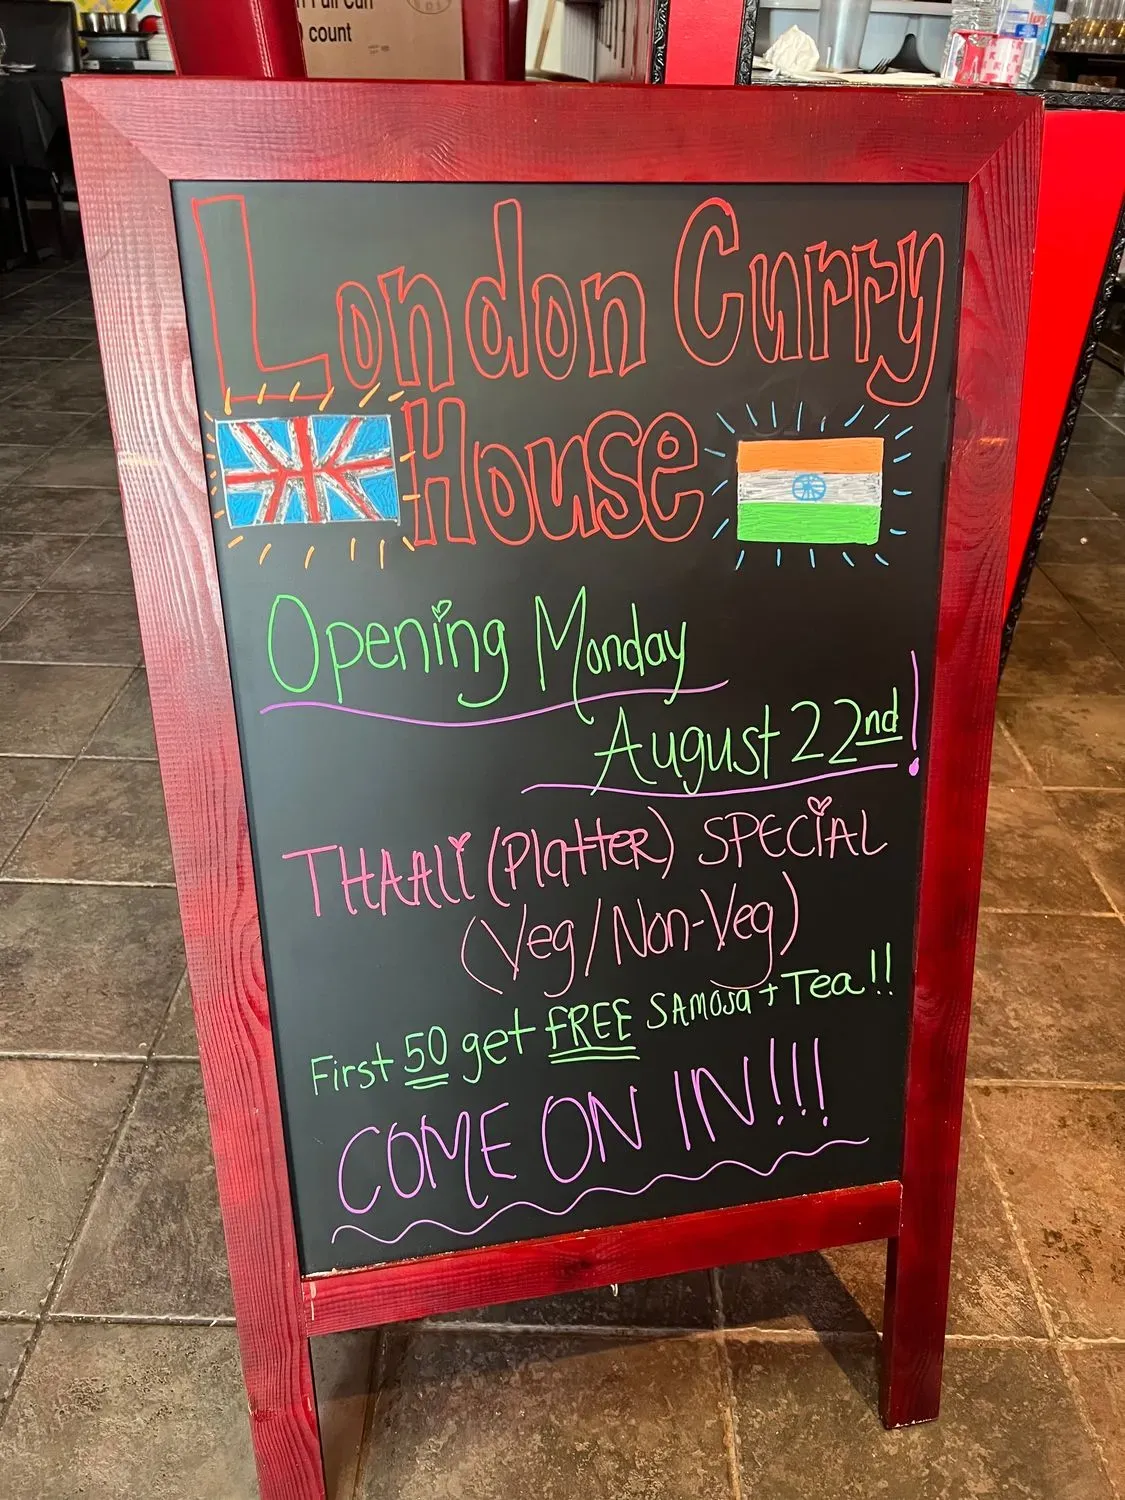 n Full Curl
count
London Curry
House
Opening Monday
August 22nd!
THAALI (Platter) SPECIAL
(Veg/Non-Veg)
First 50 get FREE SAMOSA + Tea!!
COME ON IN!!!